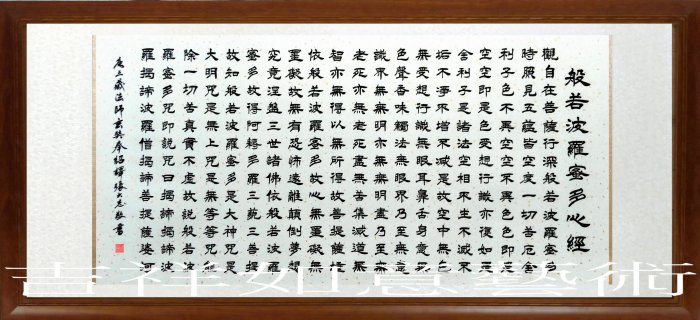 般若波羅蜜多心經
觀自在菩薩行深般若波羅蜜多
時照見五蘊皆空度一切苦厄舍
利子色不異空空不異色色即是
空空即是色受想行識亦復如是
舍利子是諸法空相不生不滅不
垢不淨不增不減是故空中無色
無受想行識無眼耳鼻舌身意無
色聲香味觸法無眼界乃至無意
識界無無明亦無無明盡乃至無
老死亦無老死盡無苦集滅道無
智亦無得以無所得故菩提薩埵
依般若波羅蜜多故心無罣礙無
罣礙故無有恐怖遠離顛倒夢想
究竟涅盤三世諸佛依般若波羅
蜜多故得阿耨多羅三藐三菩提
故知般若波羅蜜多是大神咒是
大明咒是無上咒是無等等咒能
除一切苦真實不虛故說般若波
羅蜜多咒即說咒曰揭諦揭諦波
羅揭諦波羅僧揭諦菩提薩婆訶
唐三藏法師玄奘奉詔譯 敬書
吉祥如意藝術